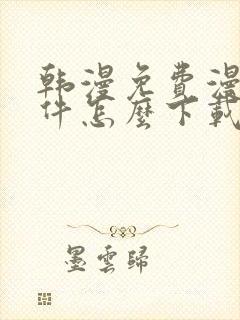 韩漫免费漫
件怎麼下載
墨雲歸